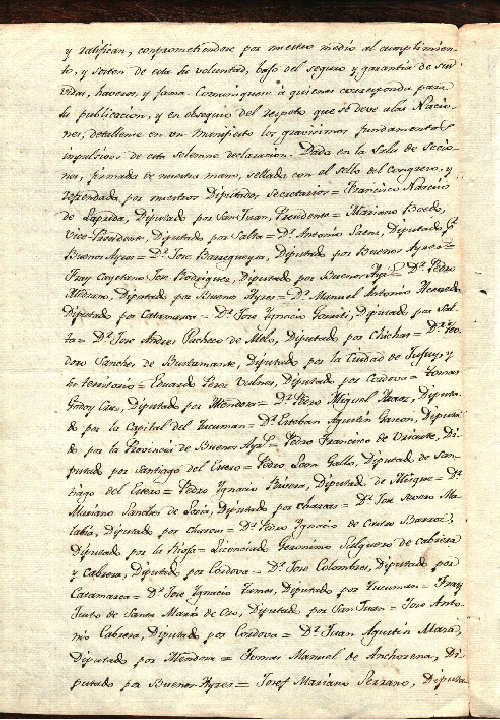 y ratifican, comprometiendose por nuestro medio al cumplimien-
to, y sosten de esta su voluntad, bajo del seguro y garantia de sus
vidas, haveres, y fama. Comuniquese à quienes corresponda para
su publicacion, y en obsequio del respeto que se deve alas Nacio-
nes, detallense en un Manifiesto los gravisimos fundamentos
impulsivos de esta solemne declaracion. Dada en la Sala de Secio-
nes, firmada de nuestra mano, sellada con el sello del Congreso, y
refrendada por nuestros Diputados Secretarios = Francisco Narciso
de Laprida, Diputado por San Juan, Presidente = Mariano Boedo,
Vice-Presidente, Diputado por Salta = Dr. Antonio Saens, Diputado
Buenos Ayres = Dr. Jose Darregueyra, Diputado por Buenos Ayres =
Fray Cayetano Jose Rodriguez, Diputado por Buenos Ays = Dr. Pedro
Medrano, Diputado por Buenos Ayres = Dr. Manuel Antonio Acevedo
Diputado por Catamarca = Dr. Jose Ignacio Gorriti, Diputado por Sal-
ta = Dr. Jose Andres Pacheco de Melo, Diputado por Chichas = Dr. Teo-
doro Sanchez de Bustamante, Diputado por la Ciudad de Jujuy, y
su territorio = Eduardo Perez Vulnes, Diputado por Cordova = Tomas
Godoy Cruz, Diputado por Mendoza = Dr. Pedro Miguel Araoz, Diputa-
do por la Capital del Tucuman = Dr. Esteban Agustin Gascon, Diputa-
do por la Provincia de Buenos Ays = Pedro Francisco de Uriarte, Di-
putado por Santiago del Estero = Pedro Leon Gallo, Diputado de San-
tiago del Estero = Pedro Ignacio Rivera, Diputado de Mizque = Dr.
Mariano Sanchez de Loria, Diputado por charcas = Dr. Jose Severo Ma-
labia, Diputado por charcas = Dr. Pedro Ignacio de Castro Barros,
Diputado por la Rioja = Licenciado Geronimo Salguero de Cabrera
y Cabrera, Diputado por Cordova = Dr. Jose Colombres, Diputado por
Catamarca = Dr. Jose Ignacio Tames, Diputado por Tucuman = Fray
Justo de Santa Maria de Oro, Diputado por San Juan = Jose Anto-
nio Cabrera, Diputado por Cordova = Dr. Juan Agustin Maza,
Diputado por Mendoza = Tomas Manuel de Anchorena, Di-
putado por Buenos Ayres = Josef Mariano Serrano, Diputa-